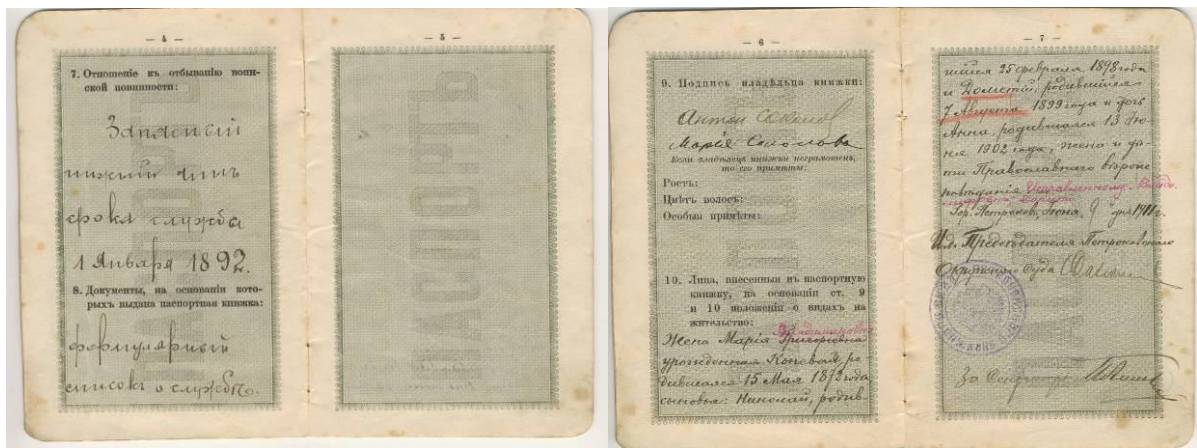 — 4 —
7. Отношеніе къ отбыванію воин-
ской повинности:
Запасный
нижній чинъ
срока службы
1 Января 1892.
8. Документы, на основаніи кото-
рыхъ выдана паспортная книжка:
формулярный
списокъ о службѣ.
— 5 —
— 6 —
9. Подпись владѣльца книжки:
Антон
Марія Соколова
Если владѣлецъ книжки неграмотенъ,
то его примѣты:
Ростъ:
Цвѣтъ волосъ:
Особыя примѣты:
10. Лица, внесенныя въ паспортную
книжку, на основаніи ст. 9
и 10 положенія о видахъ на
жительство:
Жена Марія Григорьевна
урожденная ро-
дившаяся 15 Мая 1872 года
сыновья: Николай, родив-
— 7 —
шійся 25 февраля 1898 года
и Дометій, родившійся
7 Августа 1899 года и дочь
Анна, родившаяся 13 Iю-
ня 1902 года, жена и дѣ-
ти Православнаго вѣроис-
повѣданія Исправленному
Гор. Петроковъ, Iюня 9 дня 1911 г.
И.д. Предсѣдателя Петроковскаго
Окружнаго Суда
За Секретаря